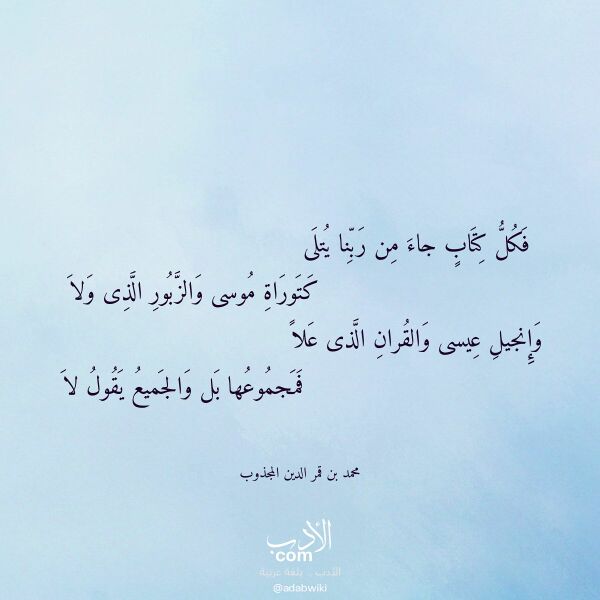 فَكُلُّ كِتَابٍ جاءَ مِن رَبِّنا يُتلَى
كَتَورَاةِ مُوسى وَالزَّبُورِ الَّذِى وَلاَ
وَإِنجيلِ عِيسى وَالقُرانِ الَّذى عَلاً
فَمَجمُوعُها بَل وَالجَميعُ يَقُولُ لاَ
محمد بن قمر الدين المجذوب
الأدب
com
الأدب .. بلغة عربية
@adabwiki